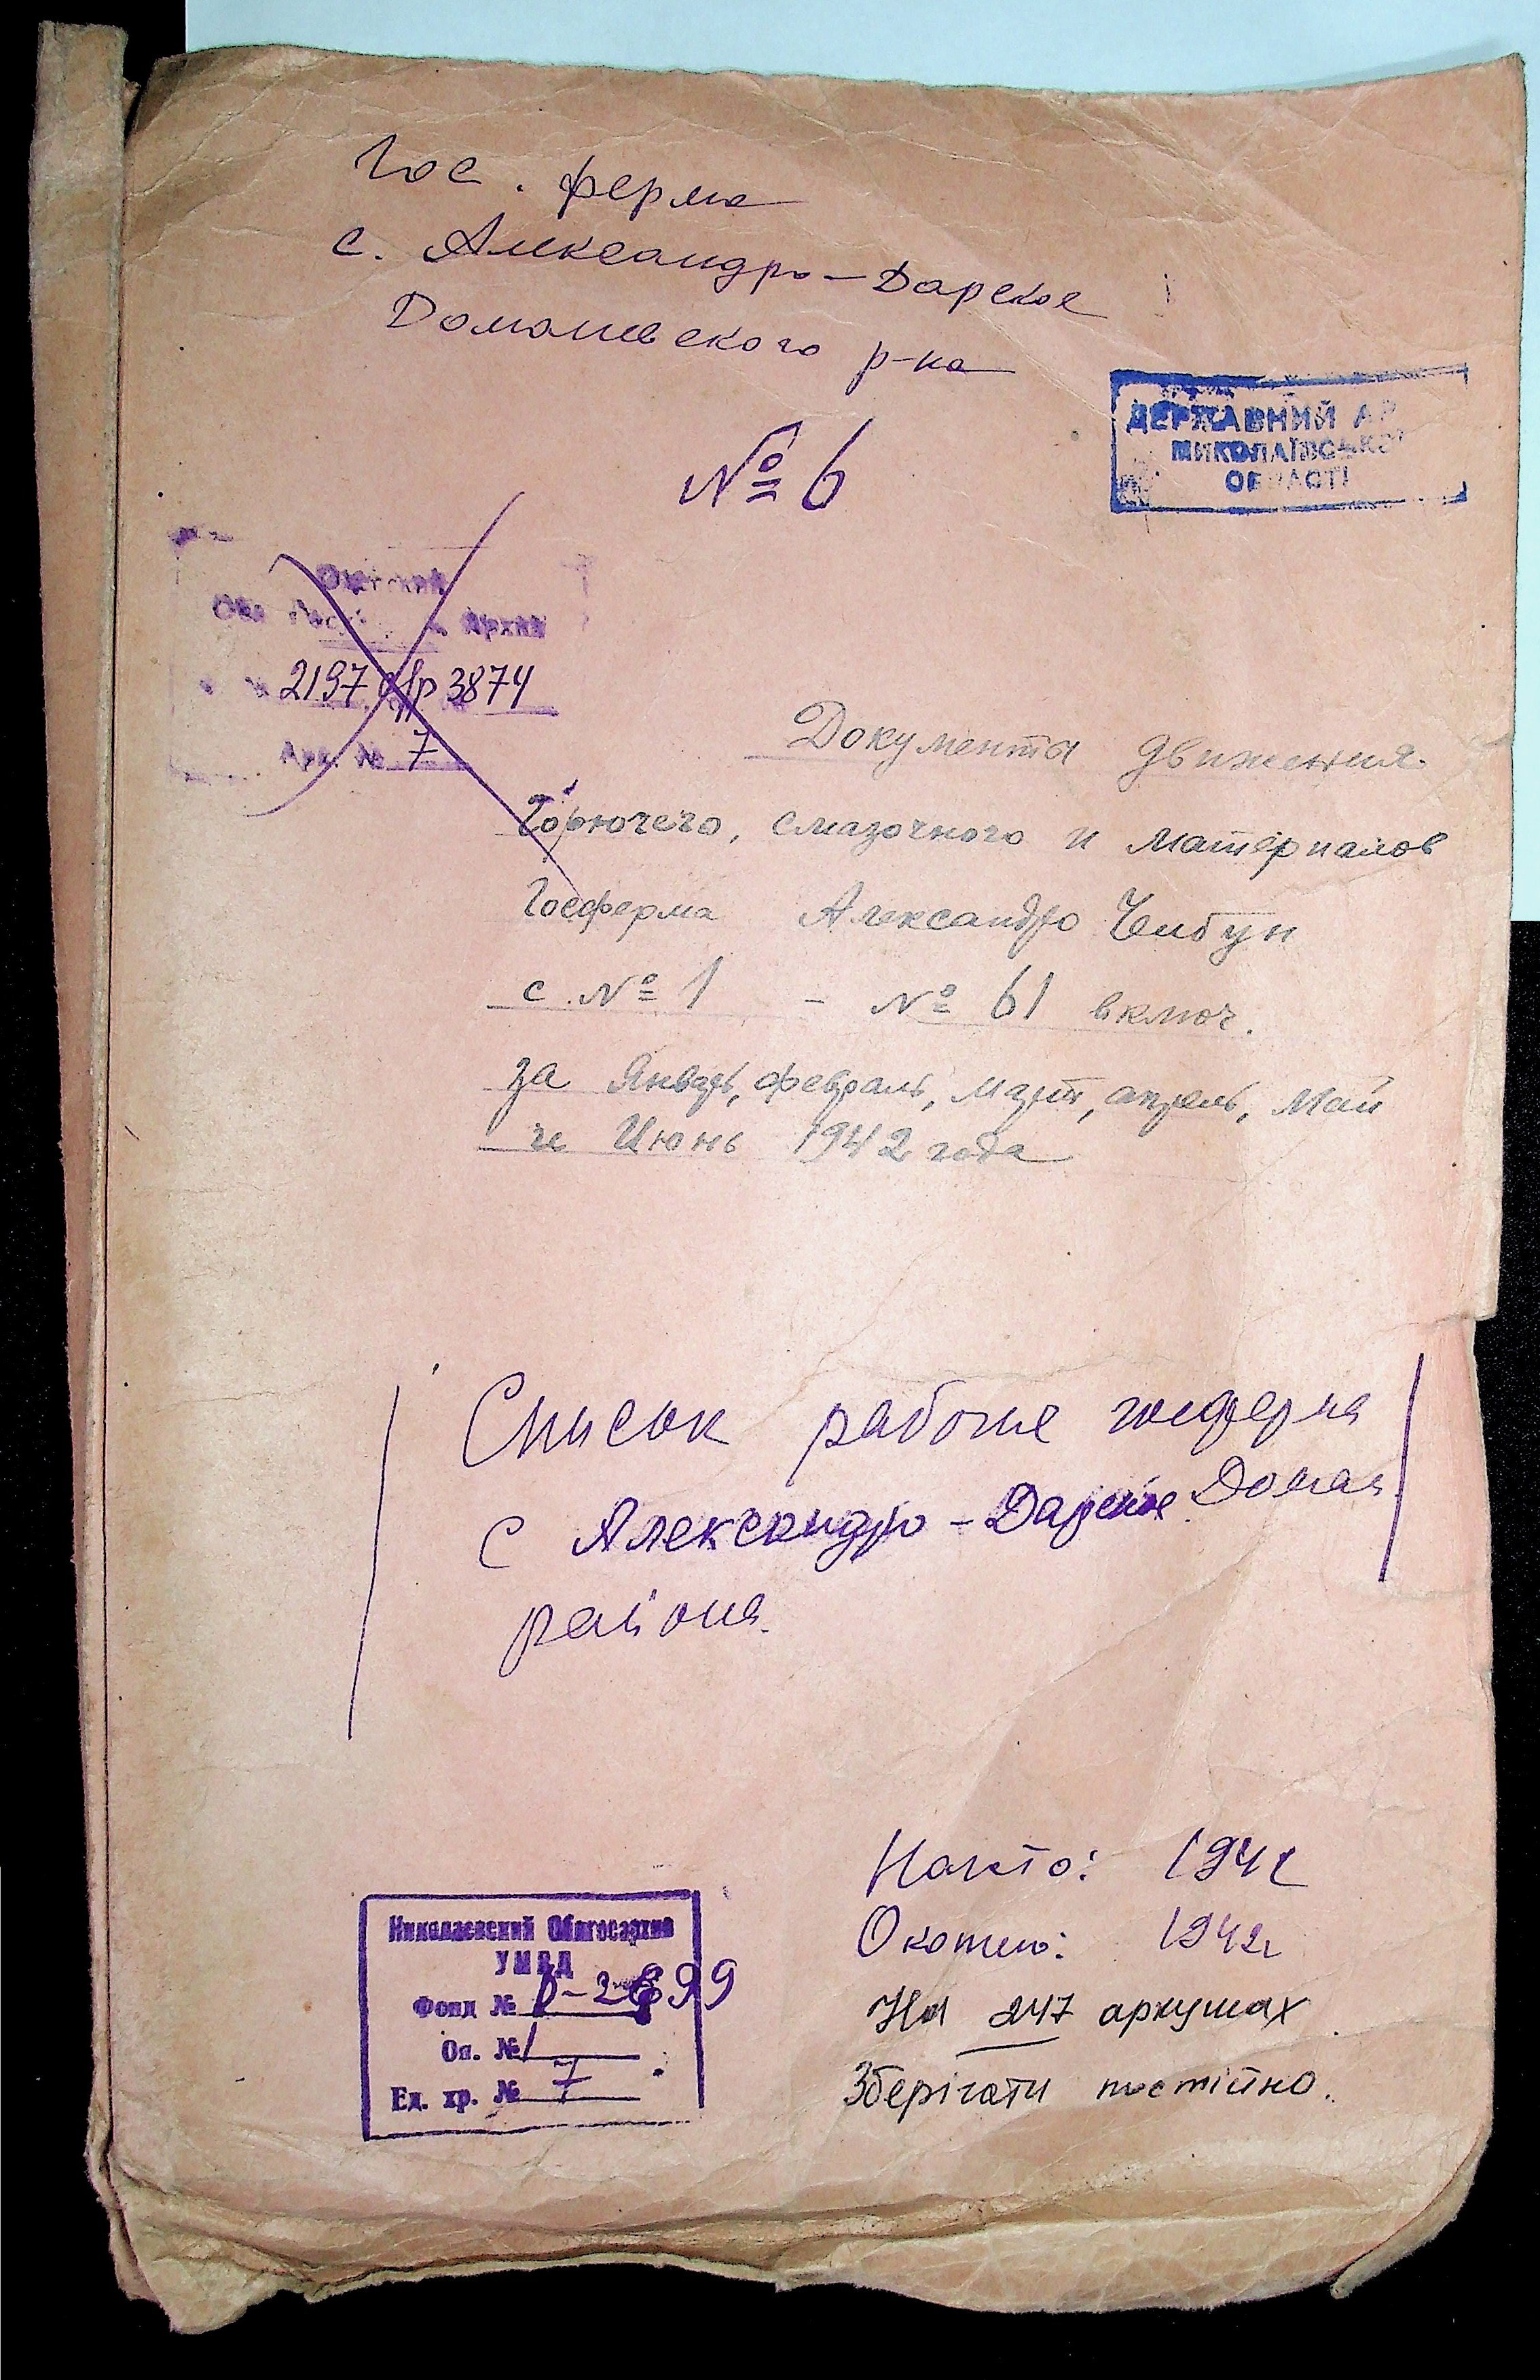 Гос. ферма
с. Александро-Дарское
Доманевского р-на
№ 6
ДЕРЖАВНИЙ АР
МИКОЛАЇВСЬКОЇ
ОБЛАСТІ
Архив
2197 3874
Арх. № 7
Документы движения
Горючего, смазочного и материалов
Госферма Александро
с № 1 - № 61 включ.
за Январь, февраль, март, апрель, Май
и Июнь 1942 года
Список рабоче госферма
с Александро-Дарское Доман
района.
1942
1942
На 247 аркушах
Зберігати постійно.
Николаевский Облгосархив
УМВД
Фонд № Р-2699
Оп. № 1
Ед. хр. № 7